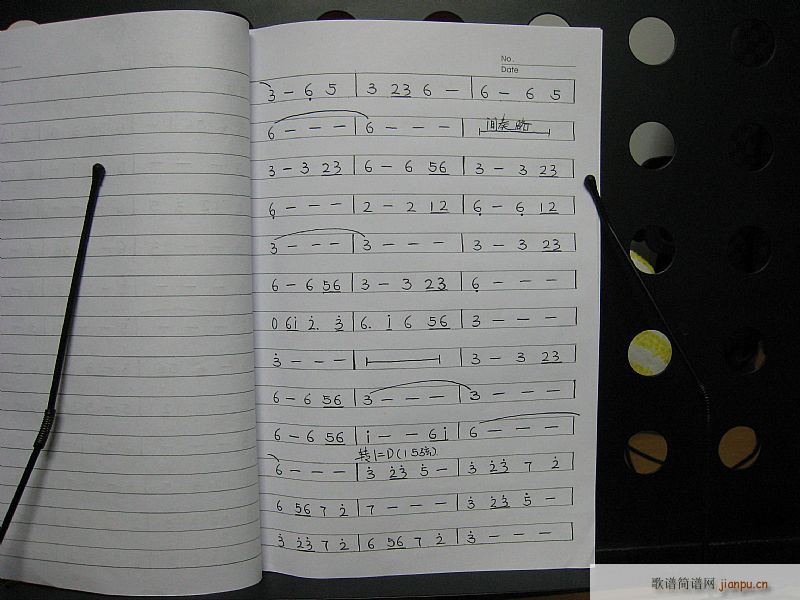 No.
Date
3 - 6 5 | 3 23 6 - | 6 - 6 5
6 - - - | 6 - - - | 间奏
3 - 3 23 | 6 - 6 56 | 3 - 3 23
6 - - - | 2 - 2 12 | 6 - 6 12
3 - - - | 3 - - - | 3 - 3 23
6 - 6 56 | 3 - 3 23 | 6 - - -
0 6i 2. 3 | 6. i 6 56 | 3 - - -
3 - - - | | 3 - 3 23
6 - 6 56 | 3 - - - | 3 - - -
6 - 6 56 | i - - 6i | 6 - - -
转1=D(153
6 - - - | 3 23 5 - | 3 23 7 2
6 56 7 2 | 7 - - - | 3 23 5 -
3 23 7 2 | 6 56 7 2 | 3 - - -
歌谱简谱网 jianpu.cn